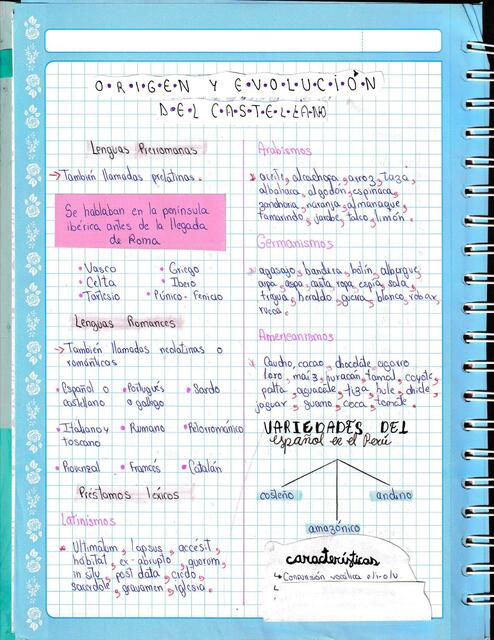 ORIGEN Y EVOLUCIÓN
DEL CASTELLANO
Lenguas Prerromanas
→ También llamadas prelatinas.
Se hablaban en la península
ibérica antes de la llegada
de Roma
• Vasco • Griego
• Celta • Ibero
• Tartesio • Púnico-Fenicio
Lenguas Romances
→ También llamadas neolatinas o
románticas
• Español o • Portugués • Sardo
castellano o galego
• Italiano y • Rumano • Retorrománico
toscano
• Provenzal • Francés • Catalán
Préstamos léxicos
Latinismos
Ultimátum, lapsus, accésit,
hábitat, ex-abrupto, quorum,
in situ, post data,
sacerdote, gravamen, iglesia.
Arabismos
aceite, alcachofa, arroz, taza,
albahaca, algodón, espinaca,
zanahoria, naranja, almanaque,
tamarindo, jarabe, talco, limón.
Germanismos
agasajo, bandera, botín, albergue,
arpa, aspa, ropa, espía, sala,
tregua, heraldo, guerra, blanco, robar,
rueca.
Americanismos
Caucho, cacao, chocolate, cigarro
loro, maíz, huracán, tamal, coyote,
palta, aguacate, tiza, hule, chicle,
jaguar, guano, coca, tomate.
VARIEDADES DEL
español en el Perú
costeño andino
amazónico
características
↳ Conversión vocálica e/i-o/u